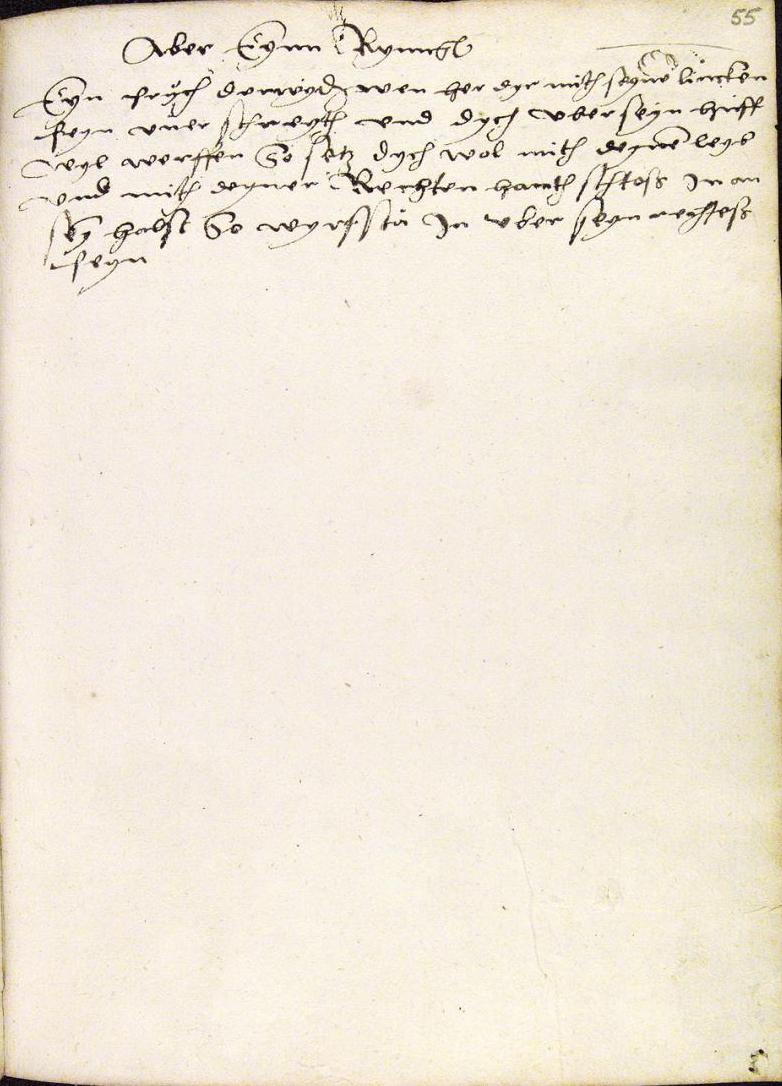 55
Aber Eynn Rynngk
Eyn bruch derwyder wen her dyr mith seyne lincken
beyn vuer schreyth vnd dych vber seyn huff
wyl werffen So setz dych wol mith deyne leyb
vnd mith deyner Rechten hanth stoss In an
sey halst So wyrfstu In vber seyn rechtess
beyn